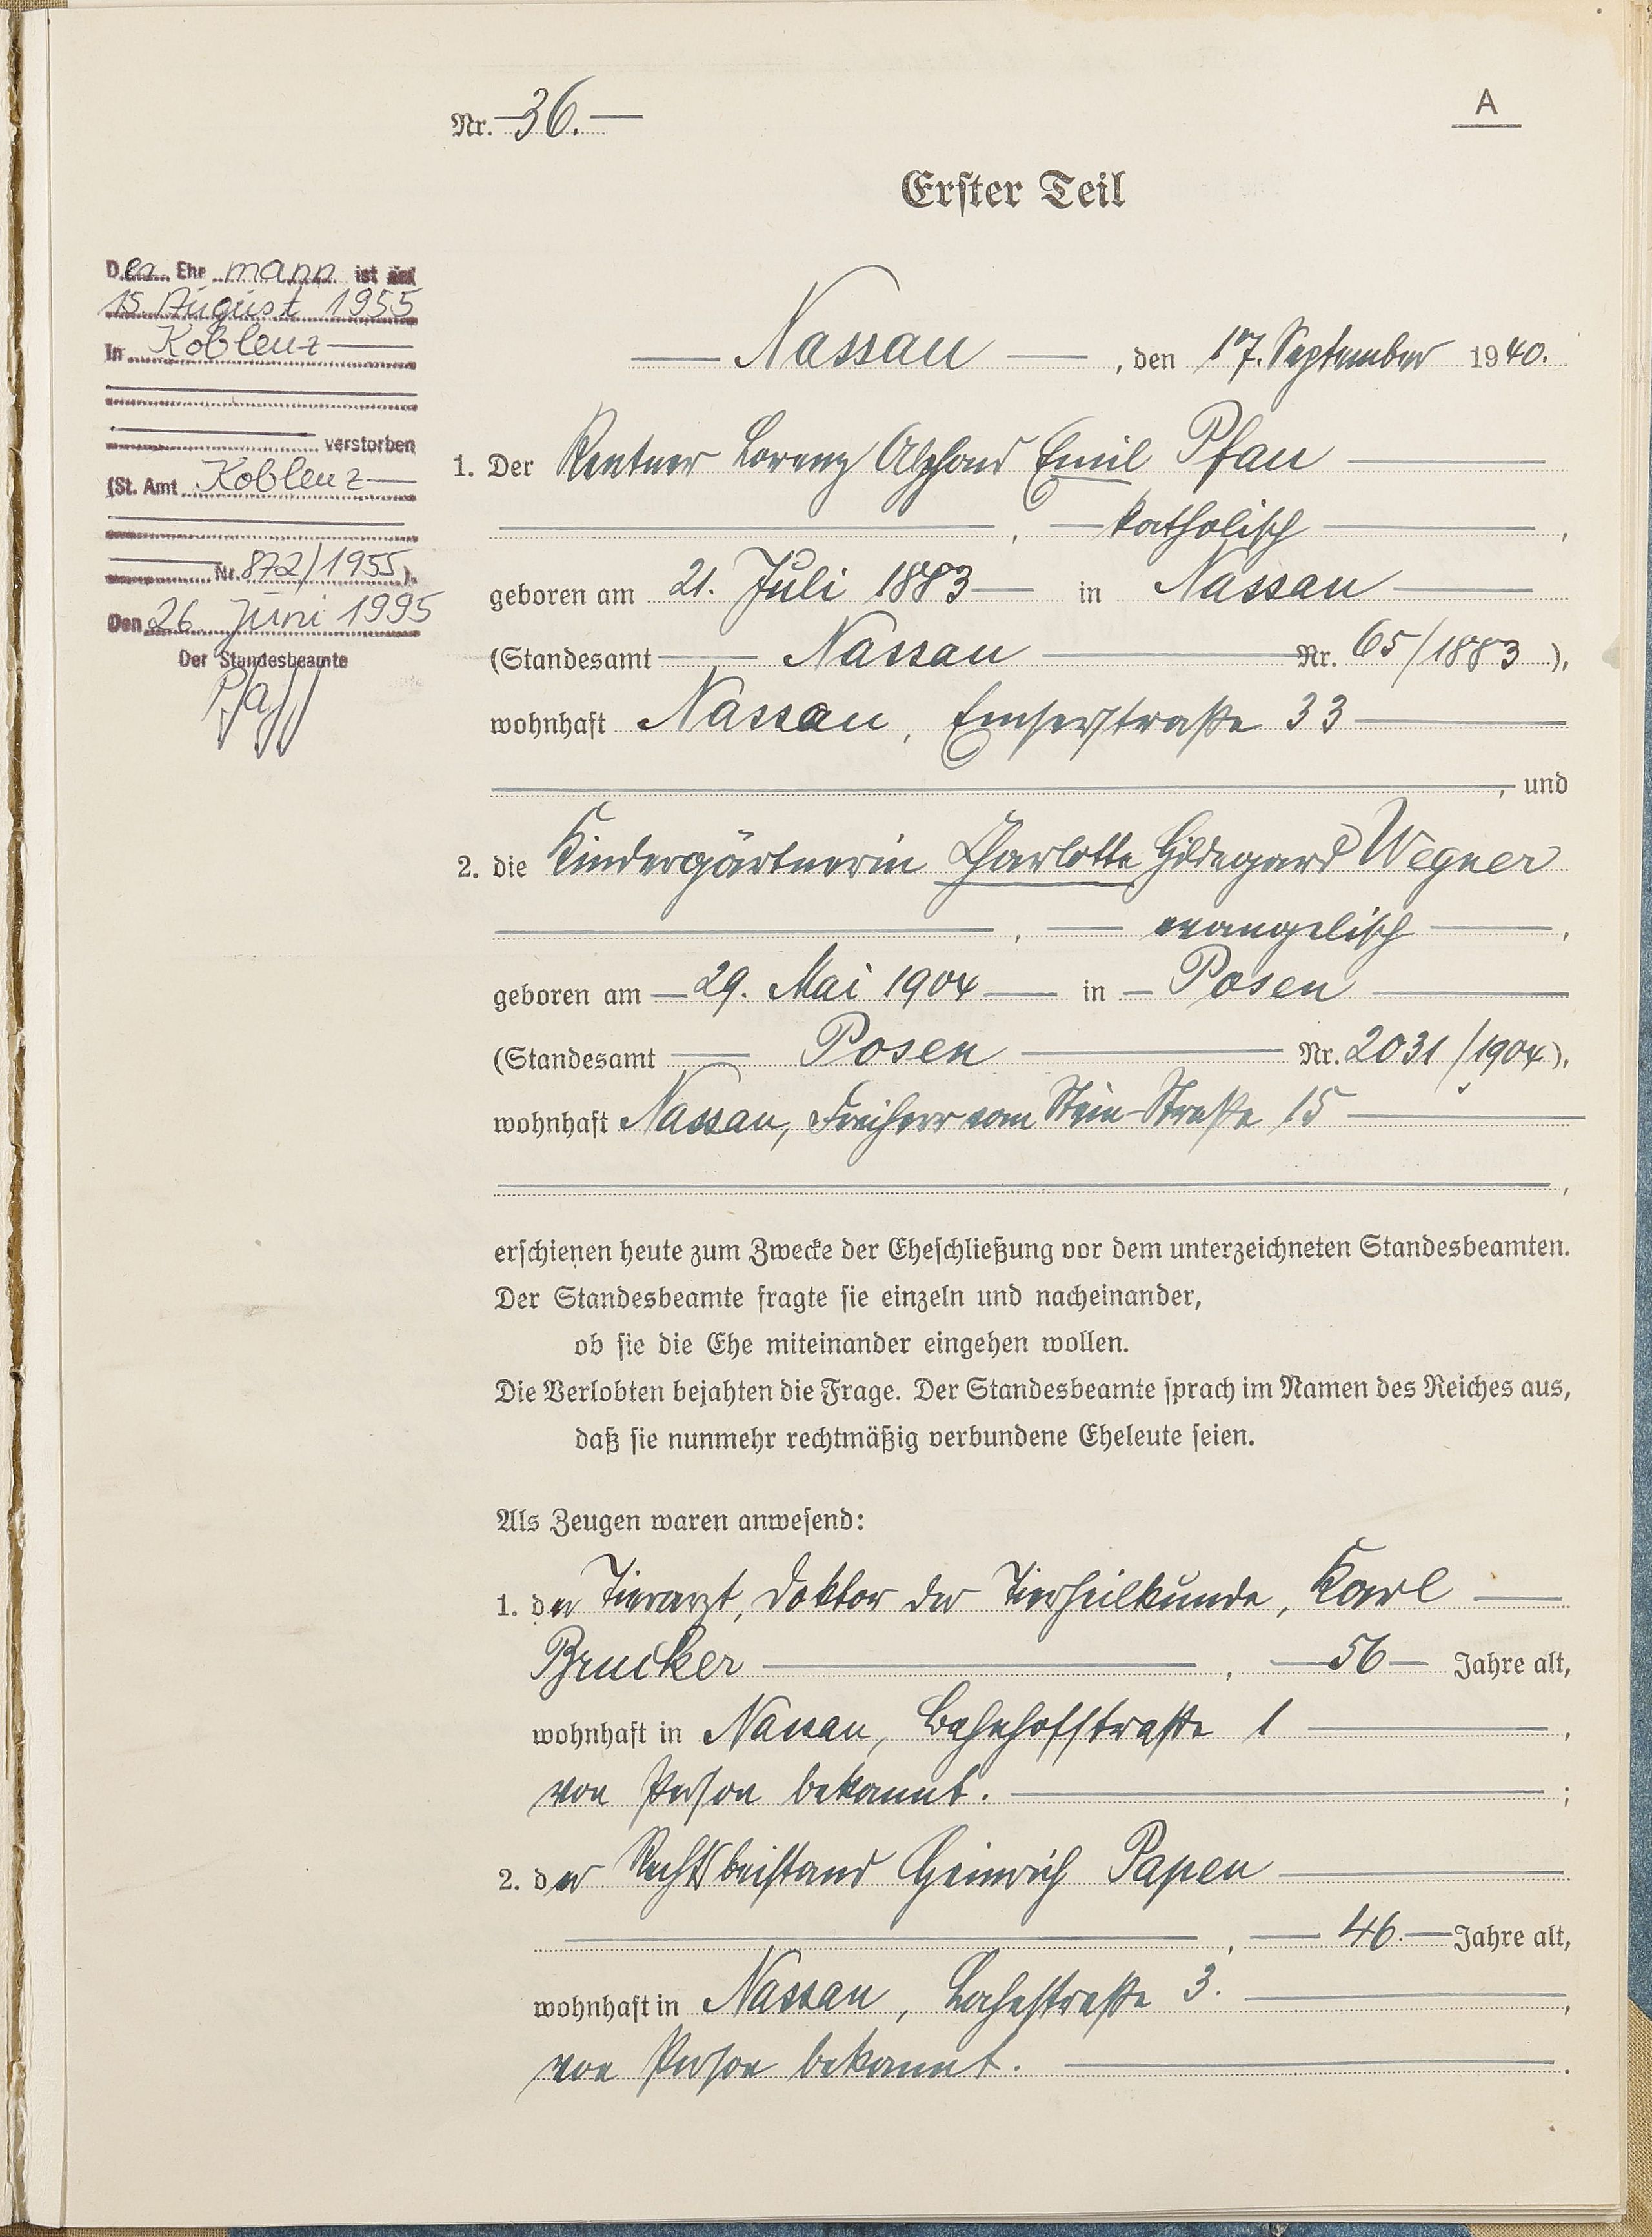 Nr. 36.
A
Erster Teil
Der Ehemann ist am
15. August 1955
in Koblenz
verstorben
(St. Amt Koblenz
Nr. 872/1955).
Den 26. Juni 1995
Der Standesbeamte
Pfaff
Nassau, den 17. September 1940.
1. Der Rentner Lorenz Alphons Emil Pfau
, katholisch,
geboren am 21. Juli 1883 in Nassau
(Standesamt Nassau Nr. 65/1883),
wohnhaft Nassau, Emserstraße 33
, und
2. die Kindergärtnerin Charlotte Hildegard Wegner
, evangelisch,
geboren am 29. Mai 1904 in Posen
(Standesamt Posen Nr. 2031/1904),
wohnhaft Nassau, Freiherr vom Stein-Straße 15
,
erschienen heute zum Zwecke der Eheschließung vor dem unterzeichneten Standesbeamten.
Der Standesbeamte fragte sie einzeln und nacheinander,
ob sie die Ehe miteinander eingehen wollen.
Die Verlobten bejahten die Frage. Der Standesbeamte sprach im Namen des Reiches aus,
daß sie nunmehr rechtmäßig verbundene Eheleute seien.
Als Zeugen waren anwesend:
1. der Tierarzt, Doktor der Tierheilkunde, Karl
Brucker, 56 Jahre alt,
wohnhaft in Nassau, Bahnhofstraße 1,
von Person bekannt. ;
2. der Rechtsbeistand Heinrich Papen
, 46. Jahre alt,
wohnhaft in Nassau, Lahnstraße 3. ,
von Person bekannt. .